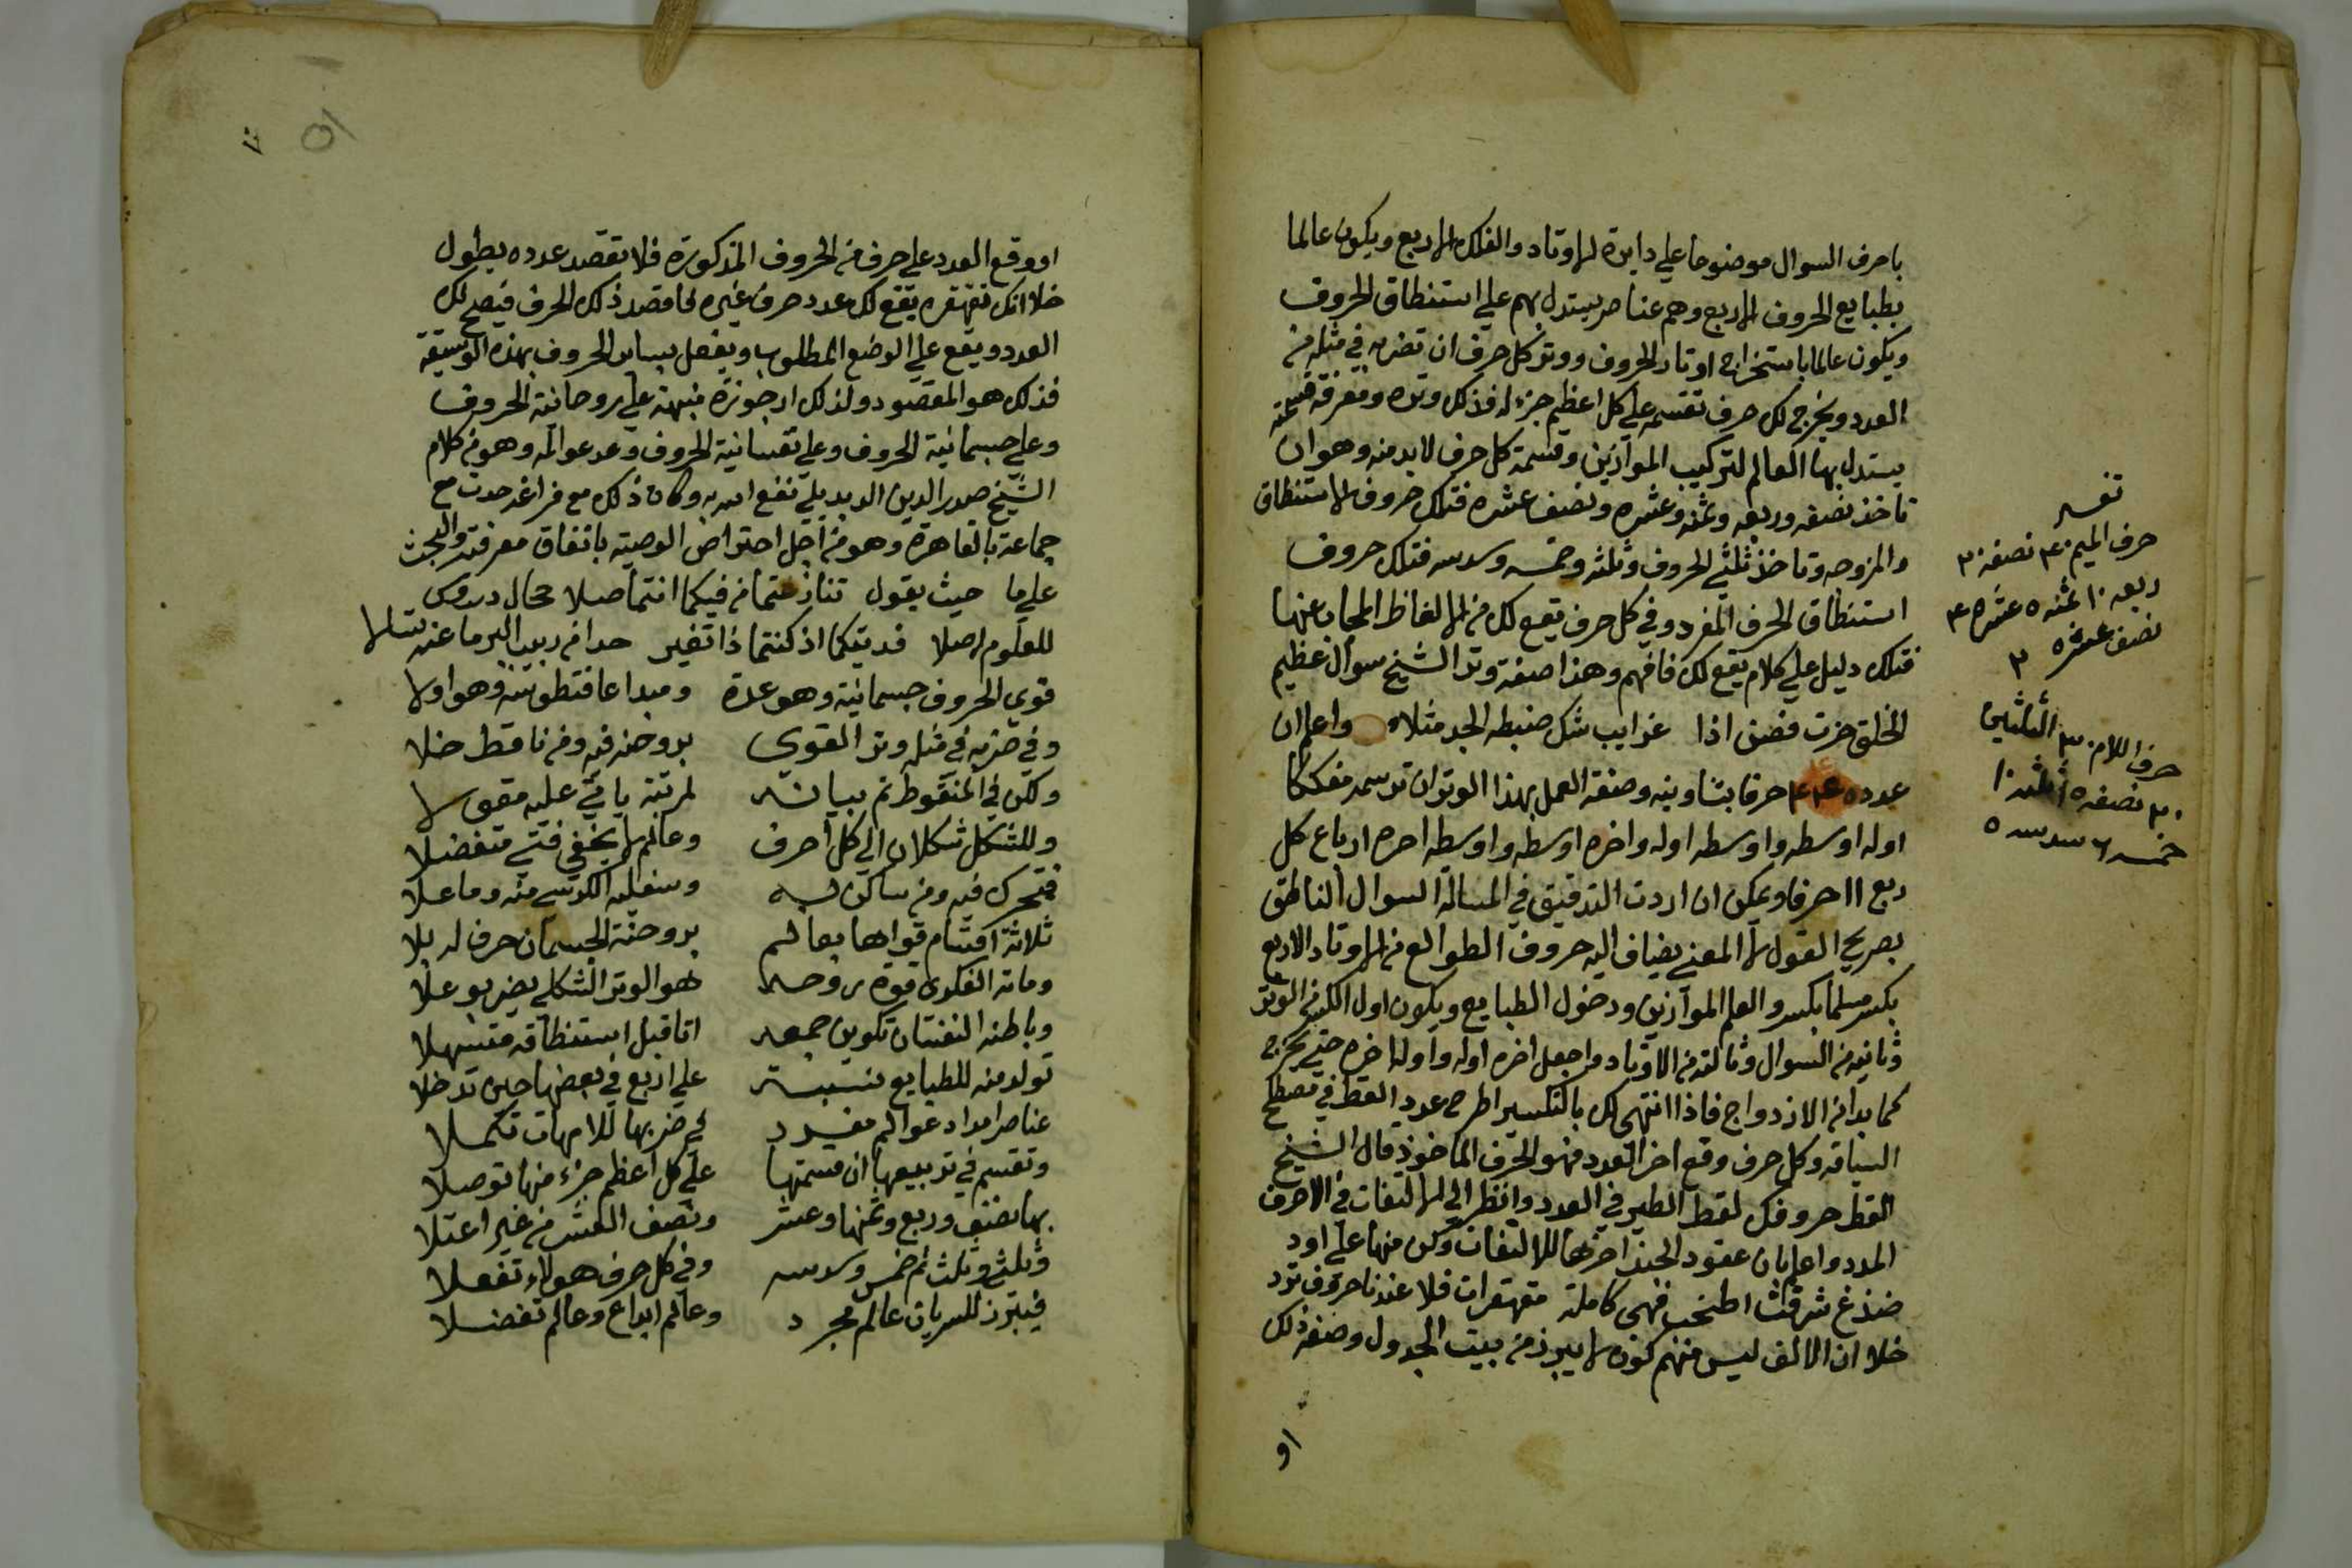 باحرف السوال موضوعا علي دايرة الاوتاد والفلك الاربع ويكون عالما
بطبايع الحروف الاربع وهم عناصر يستدل بهم علي استنطاق الحروف
ويكون عالما باستخراج اوتار الحروف ووتر كل حرف ان تضربه في مثله من
العدد ويخرج لك حرف تقسمه علي كل اعظم جزء له فذلك وتره ومعرفة قسمته
يستدل بها العالم لتركيب الموازين وقسمة كل حرف لابد منه وهو ان
تاخذ نصفه وربعه وثمنه وعشره ونصف عشره فتلك حروف الاستنطاق
والمزوجه وتاخذ ثلثي الحروف وثلثه وخمسه وسدسه فتلك حروف
استنطاق الحرف المفرد وفي كل حرف يقع لك من الالفاظ المجاب عنها
فتلك دليل علي كلام يقع لك فافهم وهذا صفة وتر الشيخ سوال عظيم
الخلق حزت فصن اذا غرايب شك ضبطه الجد مثلا واعلم ان
عدده ٤٤ حرفا بتناوينه وصفة العمل بهذا الوتر ان ترسمه مفككا
اوله اوسطه واوسطه اوله واخره اوسطه واوسطه اخره ارباع كل
ربع ١١ حرفا ويمكن ان اردت التدقيق في المسالة السوال الناطق
بصريح القول لا المعني يضاف اليه حروف الطوالع من الاوتاد الاربع
يكسر مسلما بكسر والعلم الموازين ودخول الطبايع ويكون اول الكسر الوتر
وثانيه من السوال وثالثه من الاوتاد واجعل اخره اوله واوله اخره حتي يخرج
كما بدا من الازدواج فاذا انتهي لك بالتكسير اطرح عدد القط في مصطلح
السياقه وكل حرف وقع اخر العدد فهو الحرف الماخوذ قال الشيخ
القط حروفك لقط الطير في العدد وانظر الي الالتفات في الاحرف
المدد واعلم بان عقود الجند اخرها للالتفات وكن منها علي اود
ضذغ شرقت اطنخب فهي كاملة مقهقرات فلا عندنا حروف ترد
خلا ان الالف ليس منهم كونه لا يبرز من بيت الجدول وصفة ذلك
او
تفسير
حرف الميم ٤٠ نصفه ٢٠
ربعه ١٠ ثمنه ٥ عشره ٤
نصف عشره ٢
الثلثين
حرف اللام ٣٠
٢٠ نصفه ١٥ ثلثه ١٠
خمسه ٦ سدسه ٥
او وقع العدد علي حرف من الحروف المذكورة فلا تقصد عدده يطول
خلا انك تقهقره يقع لك عدد حرف غيره لما قصد ذلك الحرف فيصح لك
العدد ويقع علي الوضع المطلوب ويفعل بساير الحروف بهذه الوتسيقة
فذلك هو المقصود ولذلك ارجوزة منبهة علي روحانية الحروف
وعلي جسمانية الحروف وعلي نفسانية الحروف وعدد عوالمه وهو من كلام
الشيخ صدر الدين الدبديلي نفع الله به وكان ذلك مع فراغه حدث مع
جماعة بالقاهرة وهو من اجل احتراض الوصية باتفاق معرفته والبحث
علي ما حيث يقول تنازعتما من فيكما انتما صلا محال دروس
للعلوم اصلا فديتكما اذ كنتما ذا تغير حدا من ربيب البر ما عنه تسلا
قوي الحروف جسمانية وهو عدة ومبداعا فتطويته وهو اولا
وفي ضربه في مثله وتر القوي بروحنة فيه ومن ناقط خلا
ولكن في المنقوط تم بيانه لمرتبة ياتي عليه مقولا
وللشكل شكلان الي كل احرف وعالم لا يخفي فتي متفضلا
فتحرك فيه ومن ساكن له وسفليه الكرسي منه وما علا
ثلاثة اقسام قواها بعالم بروحنة الجسمان حرف له بلا
ومانه الفكري قوة روحها هو الوتر الشكلي بضرب علا
وباطنه النفسان تكوين جمعه اتا قبل استنطاقه متسهلا
تولد منه للطبايع نسبة علي اربع في بعضها حين تدخلا
عناصر امداد عوالم مفرد لي ضربها للامهات تكملا
وتقسم في تربيعها ان قسمتها علي كل اعظم جزء منها توصلا
بها نصف وربع وثمنها وعشر ونصف العشر من غير اعتلا
وثلثي وثلث ثم خمس وسدسه وفي كل حرف هولاء تفعلا
فيبرز للسريان عالم مجرد وعالم ابداع وعالم تفضلا